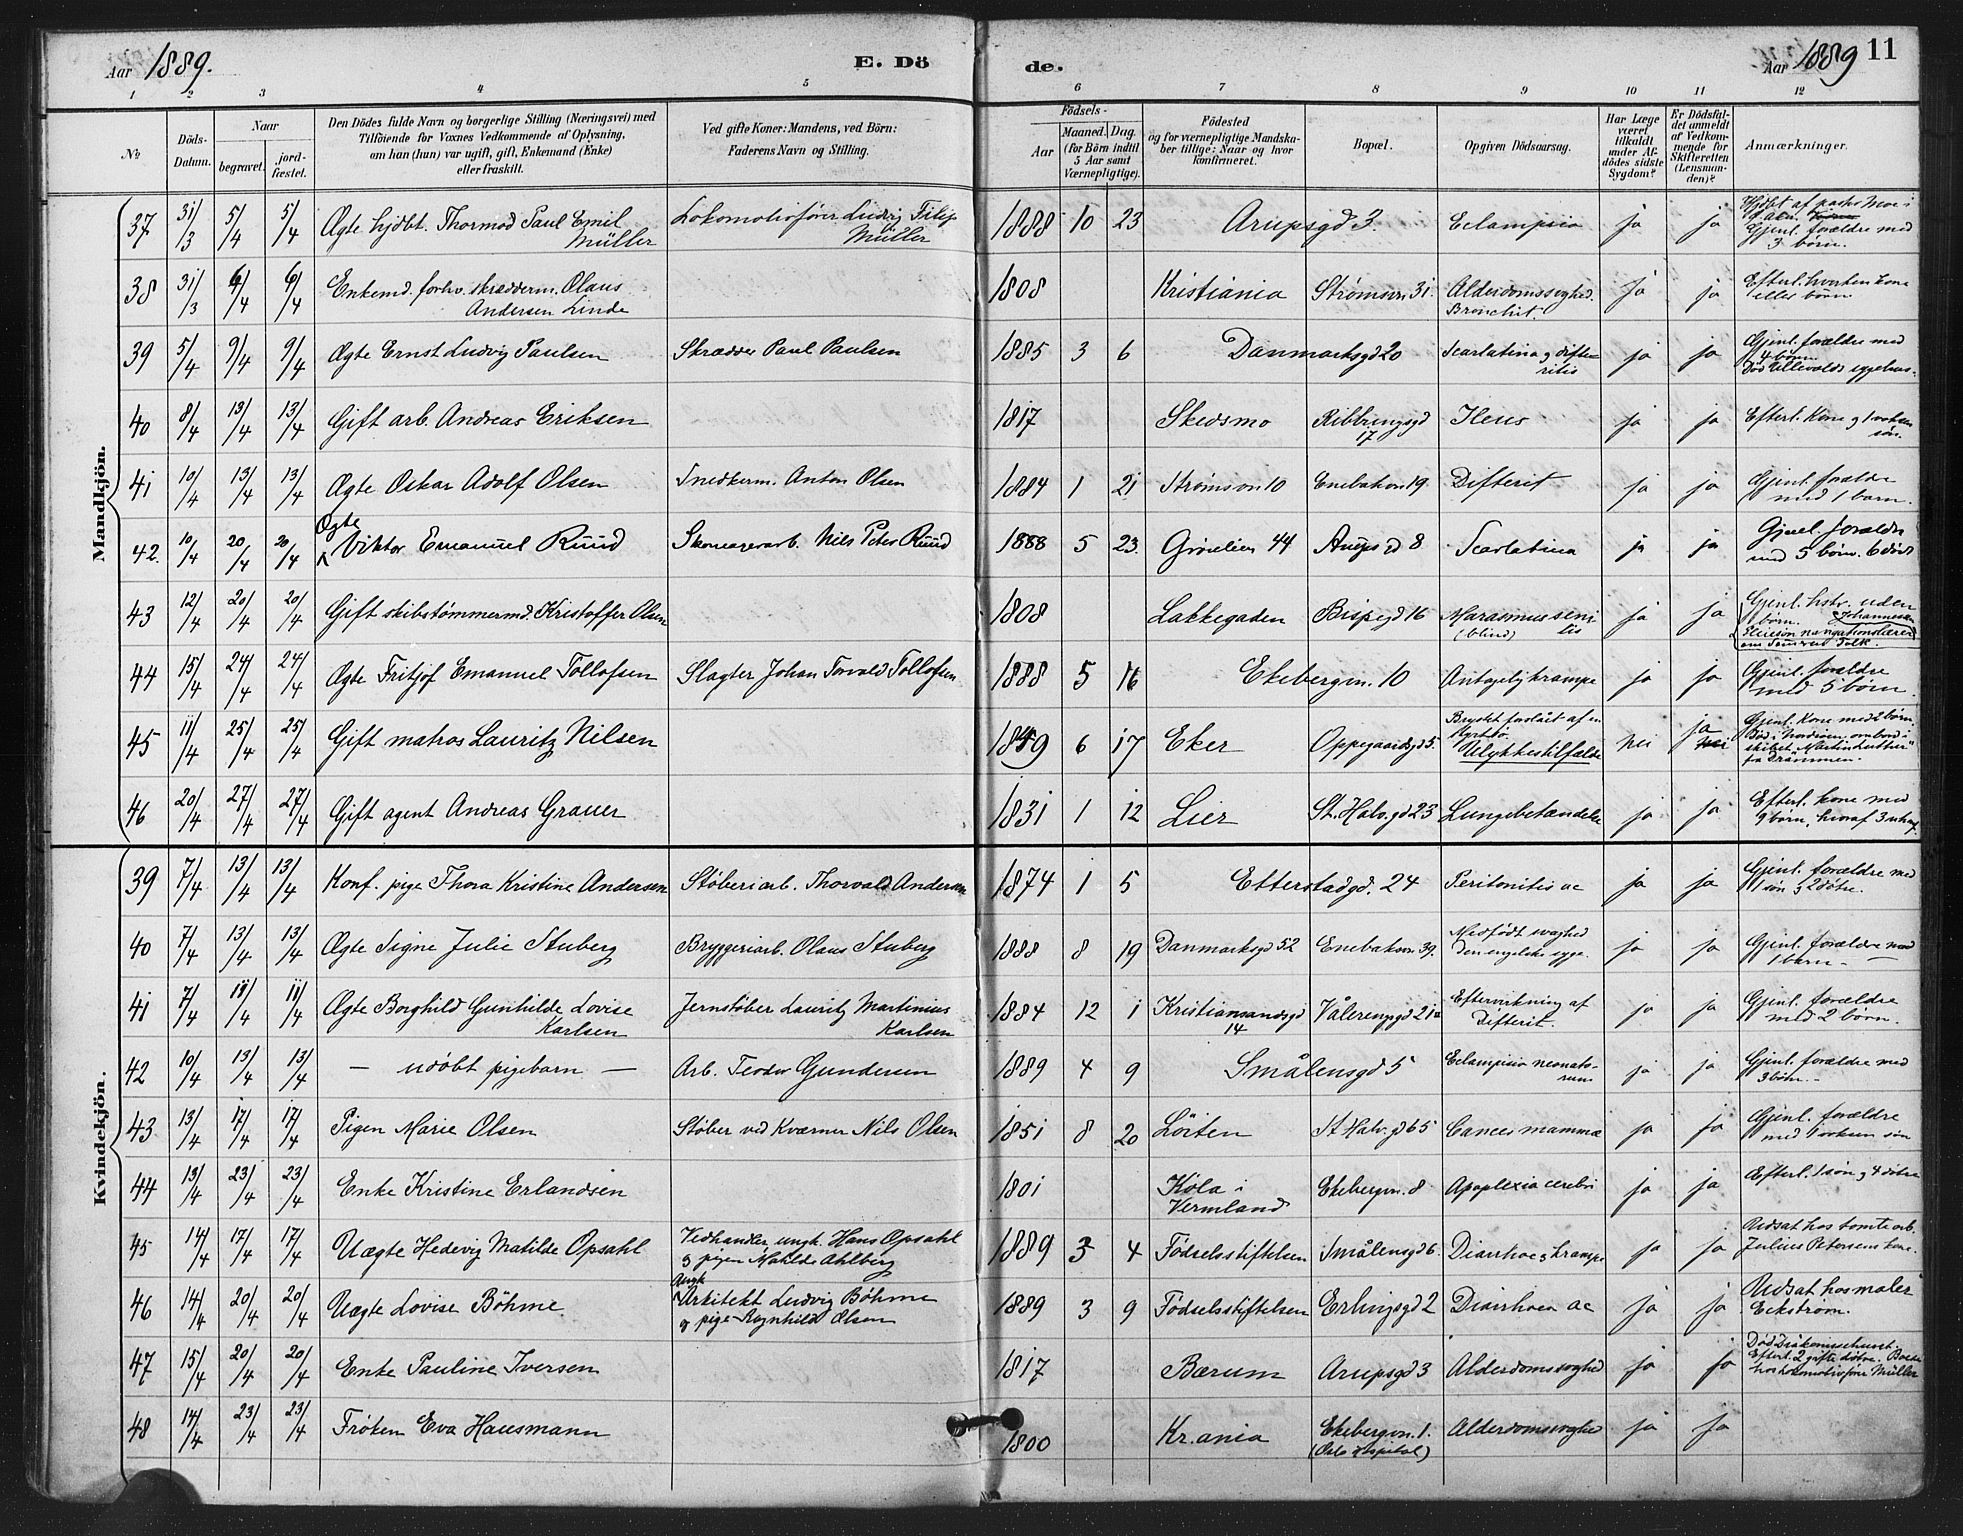 Aar 1889. E. Dö de. Aar 1889 11
1 2 3 4 5 6 7 8 9 10 11 12
№ Döds-Datum. Naar begravet. jord-fæstet. Den Dödes fulde Navn og borgerlige Stilling (Næringsvei) med Tilföiende for Voxnes Vedkommende af Oplysning, om han (hun) var ugift, gift, Enkemand (Enke) eller fraskilt. Ved gifte Koner: Mandens, ved Börn: Faderens Navn og Stilling. Födsels- Aar Maaned. Dag. (for Börn indtil 5 Aar samt Værnepligtige). Födested og for værnepligtige Mandska-ber tillige: Naar og hvor konfirmeret. Bopæl. Opgiven Dödsaarsag. Har Læge været tilkaldt under Af-dödes sidste Sygdom? Er Dödsfal-det anmeldt af Vedkom-mende for Skifteretten (Lensman-den)? Anmærkninger.
Mandkjön.
37 31/3 5/4 5/4 Ægte hjdbt. Thormod Paul Emil Müller Lokomotivfører Ludvig Filip Müller 1888 10 23 Arupsgd 3. Eclampsia ja ja Gjenl. forældre med 3 børn.
38 31/3 6/4 6/4 Enkemd. forhv. skrædderm. Olaus Andersen Linde 1808 Kristiania Strømsvn 31. Alderdomssvaghed. Bronchit. ja ja Efterl. hverken kone eller børn
39 5/4 9/4 9/4 Ægte Ernst Ludvig Paulsen Skrædder Paul Paulsen 1885 3 6 Danmarksgd 20 Scarlatina og difte-ritis ja ja Gjenl. forældre med 4 børn Død Ullevolds sygehus.
40 8/4 13/4 13/4 Gift arb. Andreas Eriksen 1817 Skedsmo Ribbungsgd 17 Ileus ja ja Efterl. kone og 1 voksen søn.
41 10/4 13/4 13/4 Ægte Oskar Adolf Olsen Snedkerm. Anton Olsen 1884 1 21 Strømsvn 10 Enebakvn 19. Difterit ja ja Gjenl. forældre med 1 barn.
42. 10/4 20/4 20/4 Ægte Viktor Emanuel Ruud Skomagerarb. Nils Peter Ruud 1888 5 23. Grønlien 44 Arupsgd 8 Scarlatina ja ja Gjenl. forældre med 5 børn. 6 døde
43 12/4 20/4 20/4 Gift skibstømmermd. Kristoffer Olsen 1808 Lakkegaden Bispegd 16 Marasmus seni-lis (blind) ja ja Gjenl. hstr. uden børn. Johannesen
44 15/4 24/4 24/4 Ægte Fritjof Emanuel Tollofsen Slagter Johan Torvald Tollofsen 1888 5 16 Ekebergvn. 10 Antagelig krampe ja ja Gjenl. forældre med 5 børn.
45 11/4 25/4 25/4 Gift matros Lauritz Nilsen 1859 6 17 Eker Oppegaardsgd 5. Brystet forslået af en styrtsø. Ulykkestilfælde nei ja nei Gjenl. kone med 2 børn. Død i Nordsjøen ombord i skibet "Martin Luther" fra Drammen.
46 20/4 27/4 27/4 Gift agent Andreas Grauer 1831 1 12 Lier St. Halv. gd 23 Lungebetændelse ja ja Efterl. kone med 9 børn, hvoraf 3
Kvindekjön.
39 7/4 13/4 13/4 Konf. pige Thora Kristine Andersen Støberiarb. Thorvald Andersen 1874 1 5 Etterstadgd. 24 Peritonitis ac ja ja Gjenl. forældre med 1 søn og 2 døtre.
40 7/4 13/4 13/4 Ægte Signe Julie Stuberg Bryggeriarb. Olaus Stuberg 1888 8 19 Danmarksgd 52 Enebakvn. 39. Medfødt svaghed Den engelske syge. ja ja Gjenl. forældre med 1 barn —
41 7/4 11/4 11/4 Ægte Borghild Gunhilde Lovise Karlsen Jernstøber Lauritz Martinius Karlsen 1884 12 1 Kristiansandsgd 14 Vålerengsgd 21a Eftervirkning af Difterit. ja ja Gjenl. forældre med 2 børn.
42 10/4 13/4 13/4 — udøbt pigebarn — Arb. Teodor Gundersen 1889 4 9 Smålensgd 5 Eclampsia neonato-rum ja ja Gjenl. forældre med 3 børn.
43 13/4 17/4 17/4 Pigen Marie Olsen Støber ved Kværner Nils Olsen 1851 8 20 Löiten St Halv. gd 65 Cancer mammæ ja ja Gjenl. forældre med 1 voksen søn
44 13/4 23/4 23/4 Enke Kristine Erlandsen 1801 Köla i Vermland Ekebergvn. 8 Apoplexia cerebri ja ja Efterl. 1 søn og 4 døtre
45 14/4 17/4 17/4 Uægte Hedevig Matilde Opsahl Vedhandler ungk. Hans Opsahl og pigen Matilde Ahlberg 1889 3 4 Fødselsstiftelsen Smålensgd 6. Diarrhoe og krampe ja ja Udsat hos tomtearb. Julius Petersens kone.
46 14/4 20/4 20/4 Uægte Lovise Böhme Ungk. Arkitekt Ludvig Böhme og pige Ragnhild Olsen 1889 3 9 Fødselsstiftelsen Erlingsgd 2 Diarrhoea ac ja ja Udsat hos maler Eckstrøm.
47 15/4 20/4 20/4 Enke Pauline Iversen 1817 Bærum Arupsgd 3 Alderdomssvaghed ja ja Død Diakonissehuset. Efterl. 2 gifte døtre. Boede hos lokomotivfører Müller
48 14/4 23/4 23/4 Frøken Eva Hausmann 1800 Kr.ania Ekebergvn. 1. (Oslo Hospital) Alderdomssvaghed ja ja